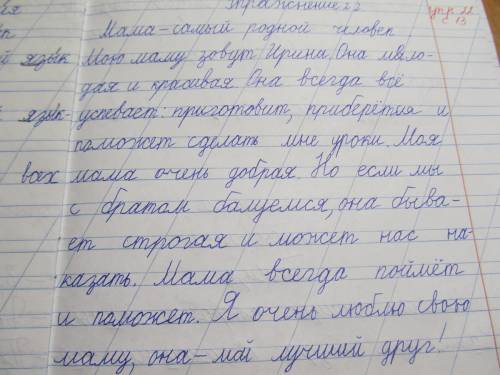 Упражнение 22
упр. 22
с 13
Мама-самый родной человек
язык Мою маму зовут Ирина. Она моло-
дая и красивая. Она всегда всё
язык- успевает: приготовит, приберётся и
поможет сделать мне уроки. Моя
вах мама очень добрая. Но если мы
с братом балуемся, она быва-
ет строгая и может нас на-
казать. Мама всегда поймёт
и поможет. Я очень люблю свою
маму, она-мой лучший друг!